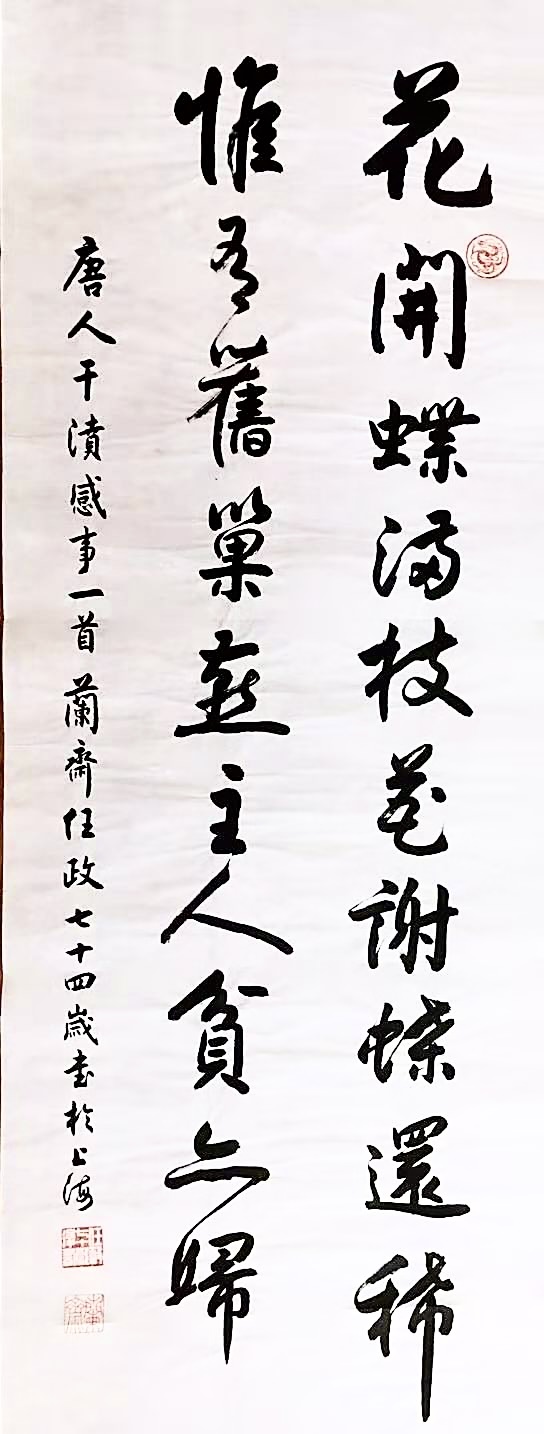 花開蝶滿枝花謝蝶還稀
惟有舊巢燕主人貧亦歸
唐人干濆感事一首蘭齋任政七十四歲書於上海